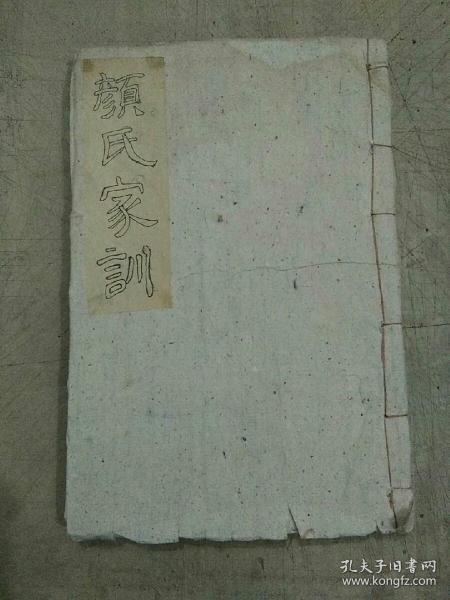 顏氏家訓
孔夫子旧书网
www.kongfz.com